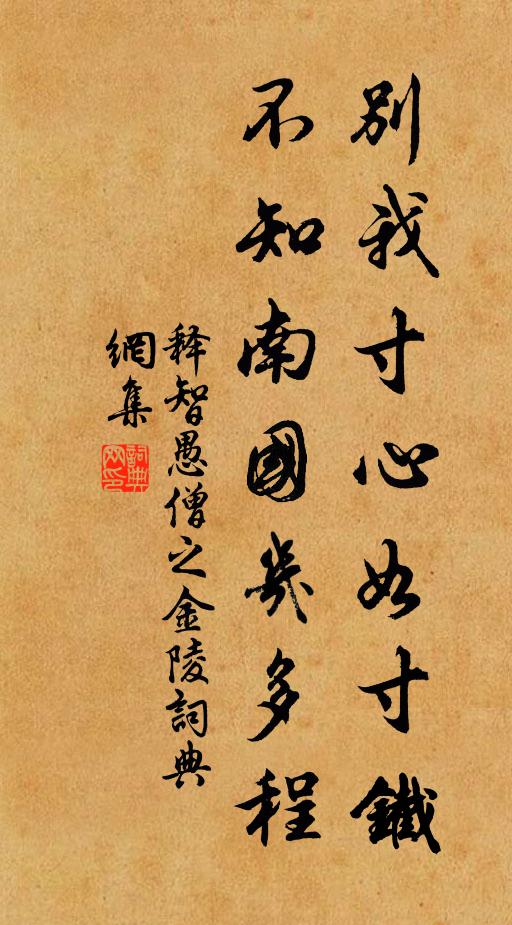 別我寸心如寸鐵
不知南國幾多程
释智愚僧之金陵詞典
網集
詞典
网印